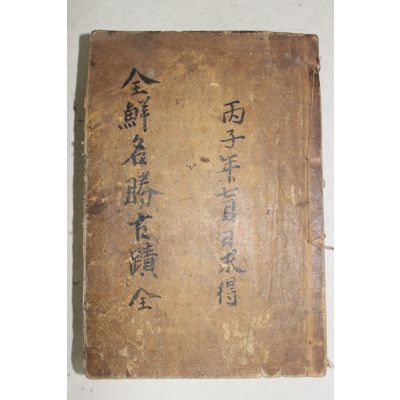 丙子年七月日求得
全鮮名勝古蹟 全